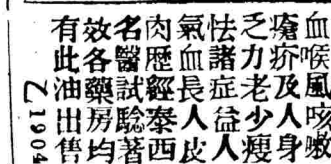 血喉風咳嗽
瘡疥及人身
乏力老少瘦
怯諸症益人
氣血長人皮
肉歷經泰西
名醫試騐著
效各藥房均
有此油出售
Z 1904